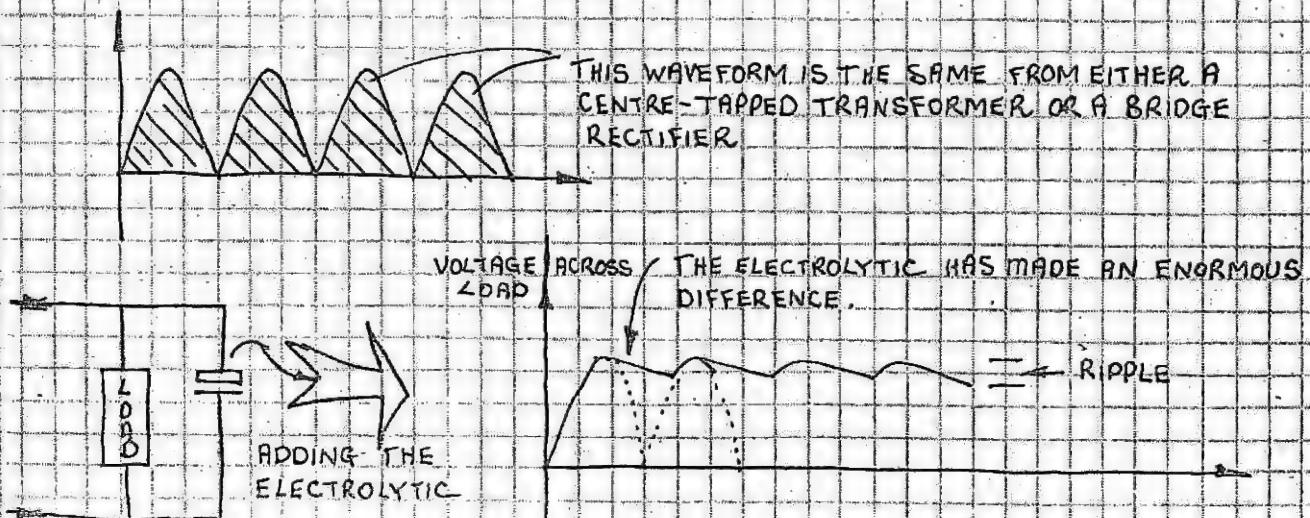 THIS WAVEFORM IS THE SAME FROM EITHER A
CENTRE-TAPPED TRANSFORMER OR A BRIDGE
RECTIFIER
VOLTAGE ACROSS
LOAD
THE ELECTROLYTIC HAS MADE AN ENORMOUS
DIFFERENCE.
RIPPLE
LOAD
ADDING THE
ELECTROLYTIC